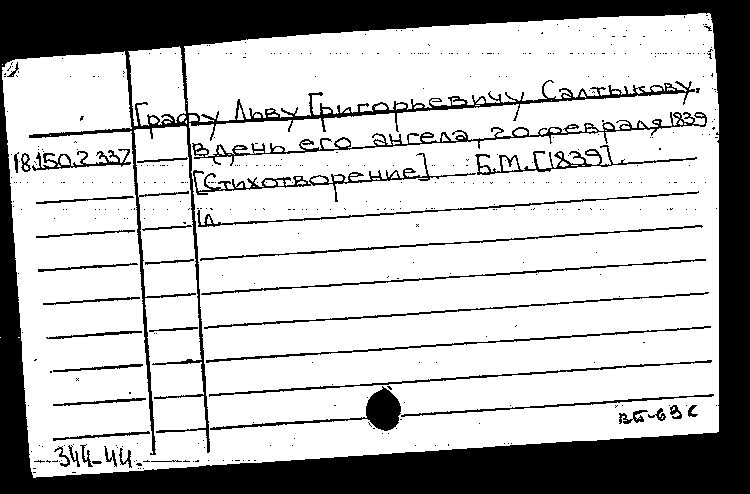 Графу Льву Григорьевичу Салтыкову.
18.150.2.337 в день его ангела, 20 февраля 1839
[Стихотворение]. Б.М. [1839].
1л.
344-44.